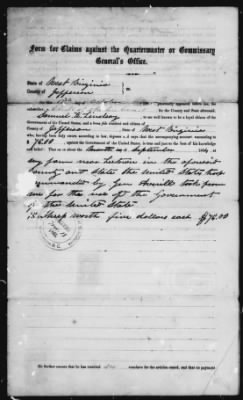 Form for Claims against the Quartermaster or Commissary
General's Office.
State of West Virginia
County of Jefferson
personally appeared before me, the
for the County and State aforesaid,
Samuel to me well known to be a loyal citizen of the
Government of the United States, and a bona fide resident and citizen of
County of Jefferson State of West Virginia
who having been duly sworn according to law, deposes and says that the accompanying account amounting to
$ 75.00, against the Government of the United States, is true and just to the best of his knowledge
and belief: That on or about the month of September 1864, at
my farm near in the aforesaid
County and State the United States troops
commanded by Gen Averill took from
me for the use of the Government
of the United States
15 sheep worth five dollars each $75.00
He further swears that he has received no vouchers for the articles named, and that no payment